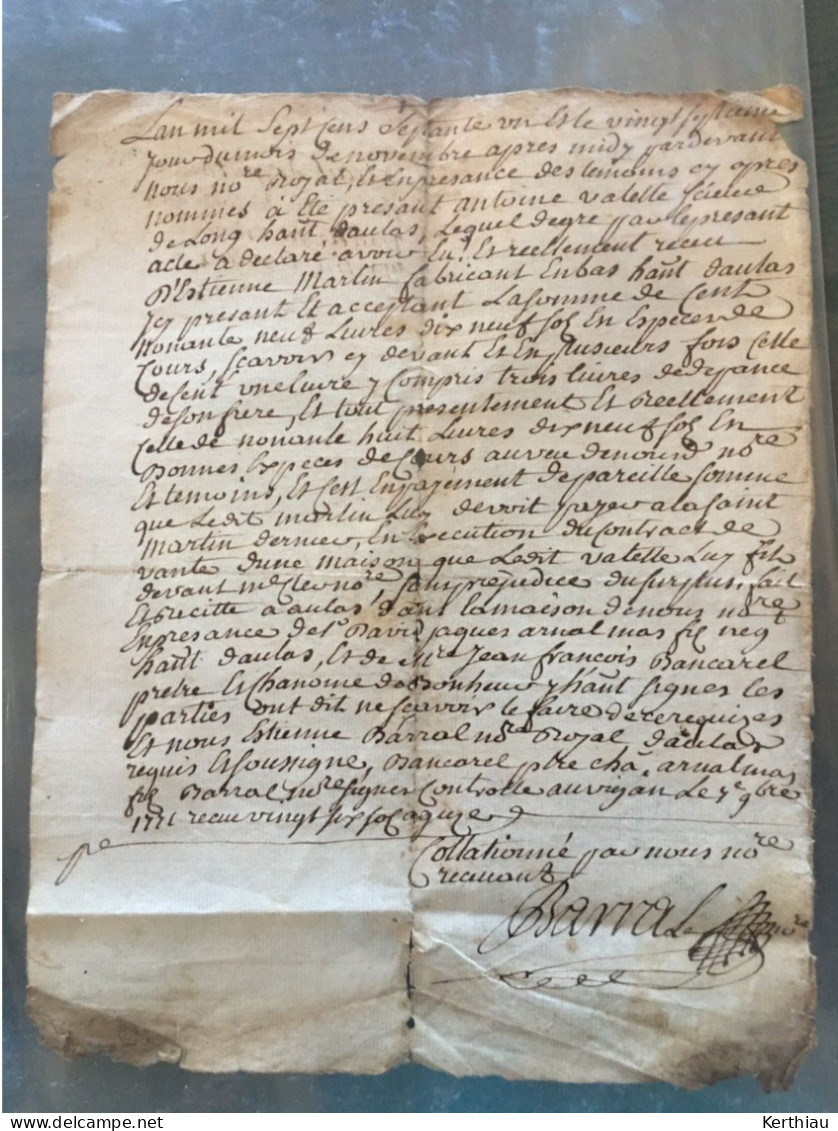 Lan mil Sept Cens Septante un Et le vingt septieme
Jour du mois de novembre apres midy pardevant
nous no.re Royal, Et En presance des temoins cy apres
nommés à Eté presant antoine valette
de Long haut daulas, Lequel de gré par le presant
acte a declaré avoir Eu, Et reellement receu
D'Estienne Martin fabricant En bas haut daulas
Icy presant Et acceptant La somme de Cent
nonante neuf Livres dix neuf sols En Especes de
Cours, Scavoir cy devant Et En plusieurs fois Celle
de Cent une livre y Compris trois livres de depance
de son frere, Et tout presentement Et reellement
Celle de nonante huit Livres dix neuf sols En
Bonnes Especes de Cours au veu de nous d. no.re
Et temoins, Et C'est En payement de pareille somme
que Ledit martin Luy devoit payer a la saint
Martin dernier, En Execution du Contract de
vante dune maison que Ledit valette Luy fit
devant me no.re, sans prejudice du surplus, fait
Et recitté a aulas dans la maison de nous no.re
En presance de s.r David jaques arnal mas
haut daulas, Et de m.re Jean françois Bancarel
pretre Et Chanoine de Bonheur y haut signes les
parties ont dit ne scavoir le faire de ce requizes
Et nous Estienne Barral no.re Royal daulas
requis Et soussigné, Bancarel p.tre cha. arnal mas
Barral, no.re signes Controllé au vigan Le 7.e 9bre
1771 receu vingt six sols
Collationné par nous no.re
recevant
Barral no.re
Kerthiau